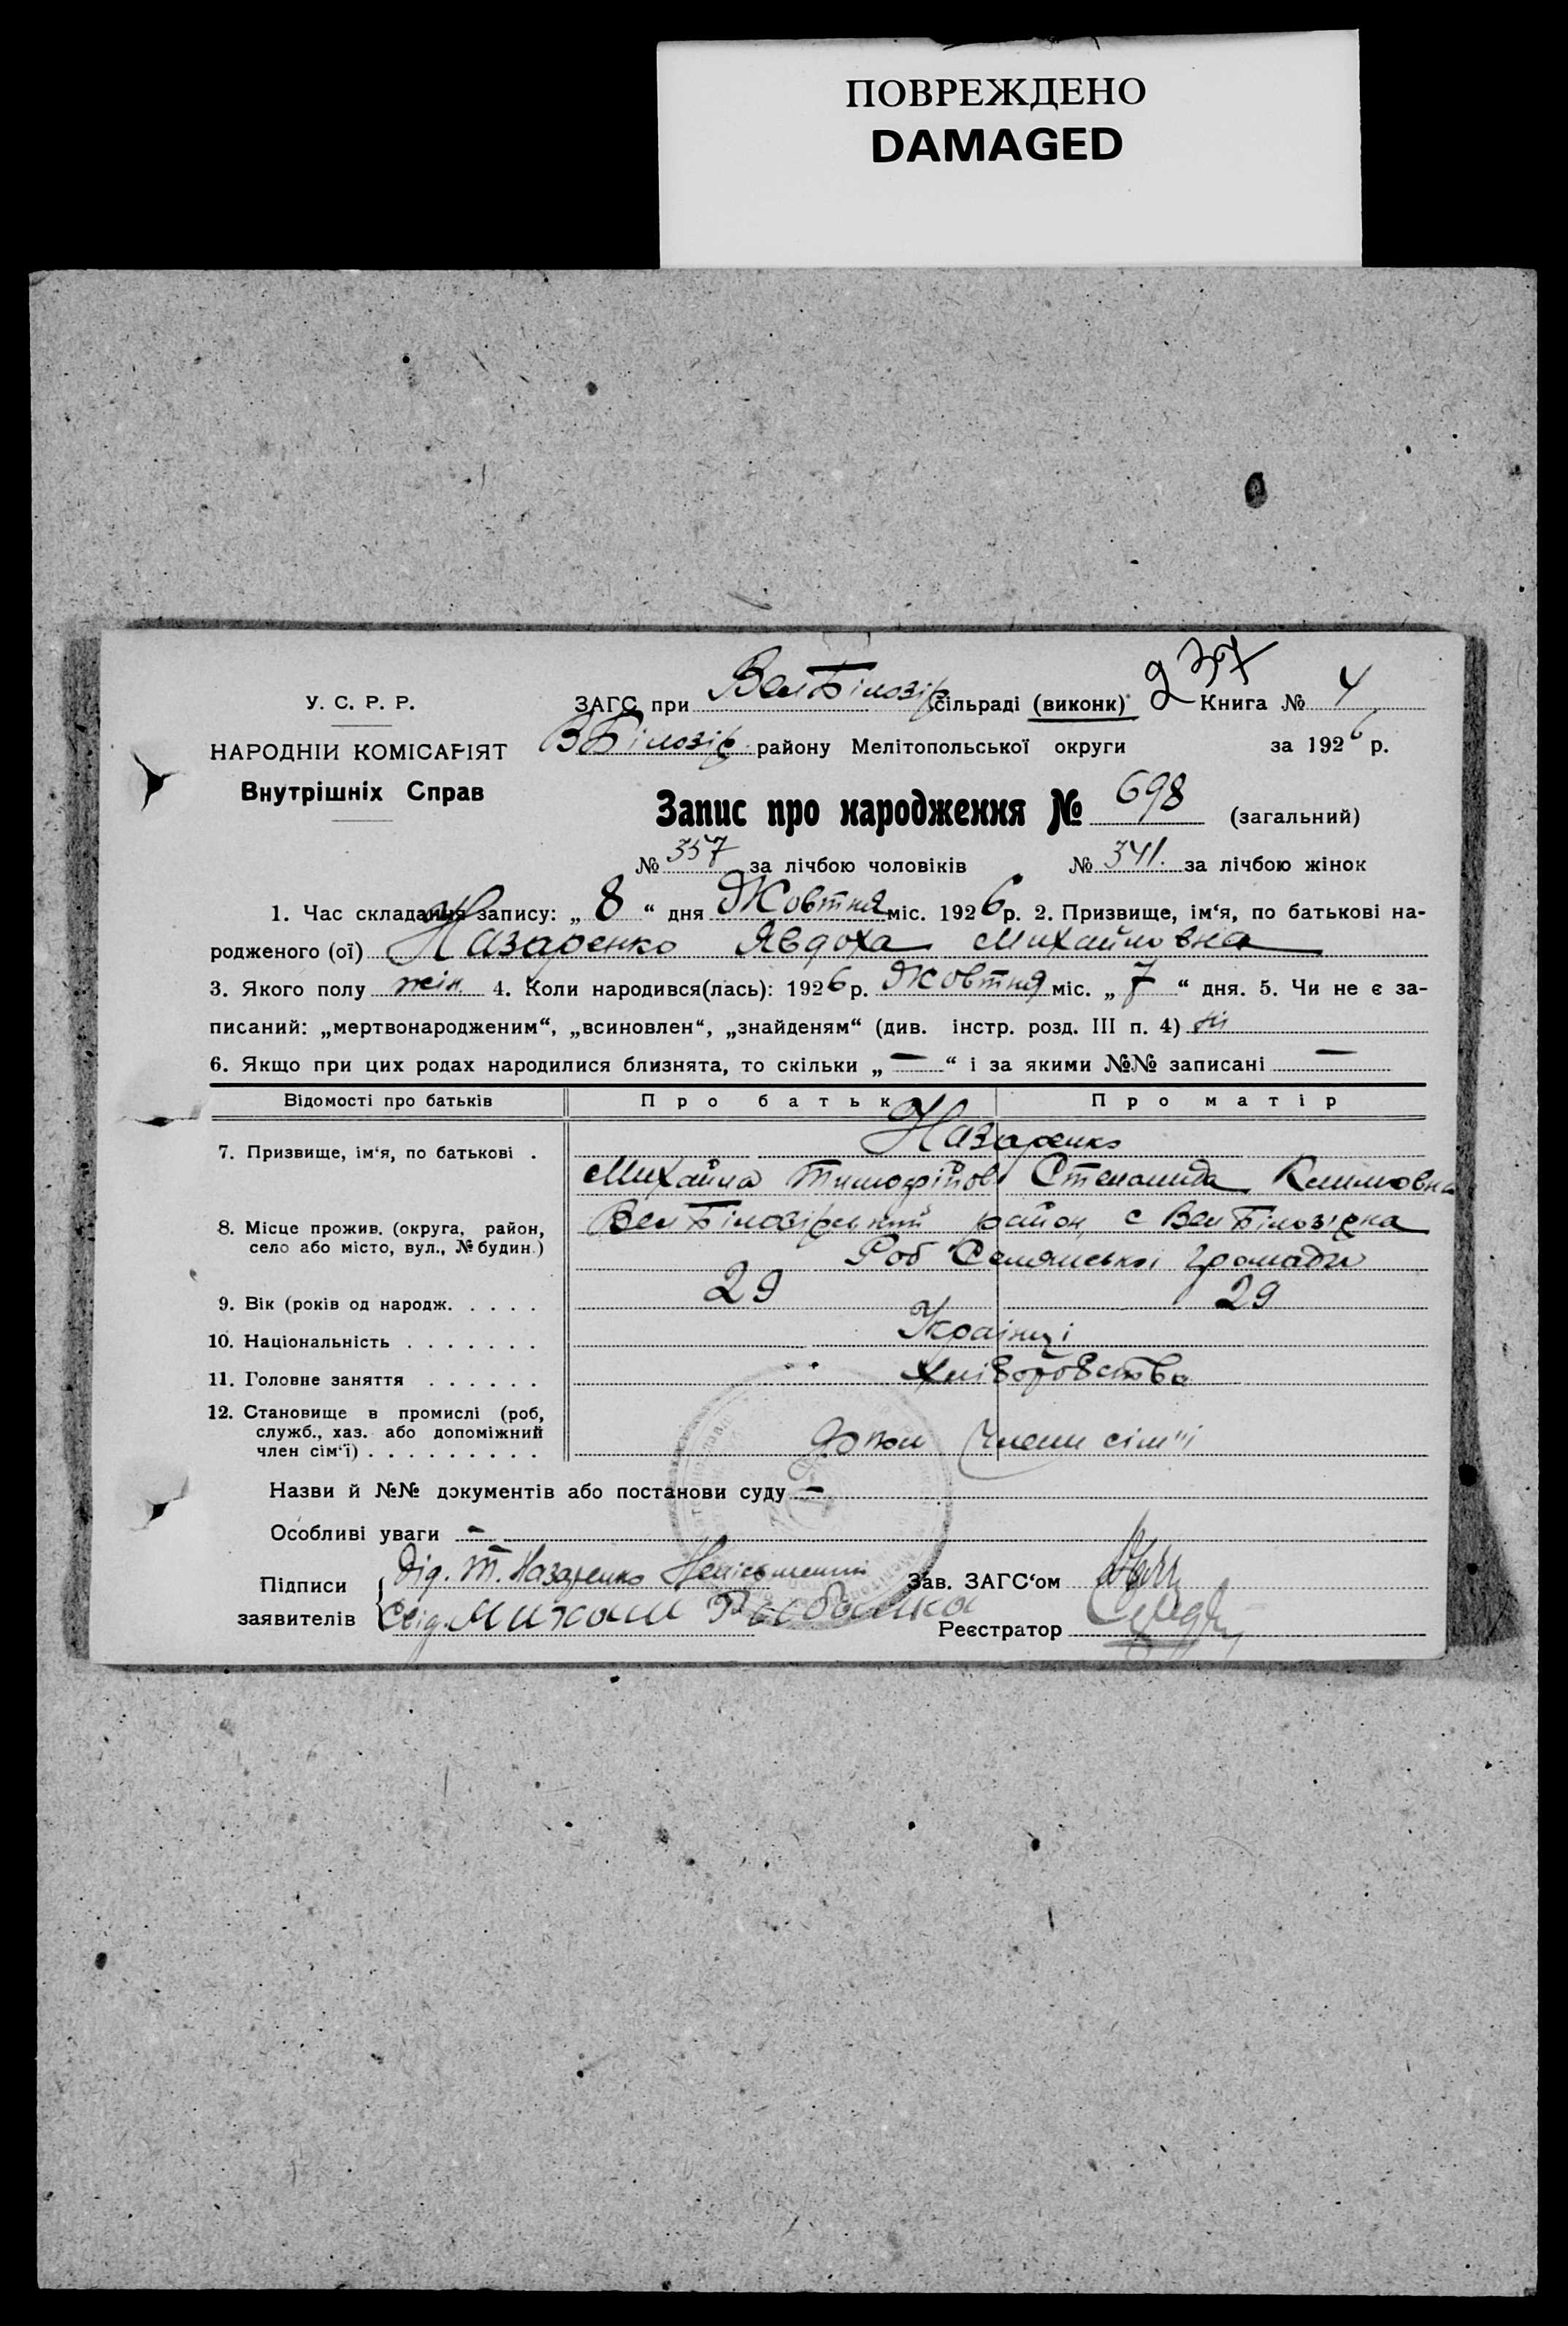 ПОВРЕЖДЕНО
DAMAGED
237
У. С. Р. Р.
ЗАГС при ВелБілозір сільраді (виконк) Книга № 4
НАРОДНІЙ КОМІСАРІЯТ
ВБілозір. району Мелітопольської округи за 1926 р.
Внутрішніх Справ
Запис про народження № 698 (загальний)
№ 357 за лічбою чоловіків № 341. за лічбою жінок
1. Час складання запису: „ 8 “ дня Жовтня міс. 1926 р. 2. Призвище, ім‘я, по батькові на-
родженого (ої) Назаренко Явдоха Михайловна
3. Якого полу жін. 4. Коли народився(лась): 1926 р. Жовтня міс. „ 7 “ дня. 5. Чи не є за-
писаний: „мертвонародженим“, „всиновлен“, „знайденям“ (див. інстр. розд. III п. 4) ні
6. Якщо при цих родах народилися близнята, то скільки „ — “ і за якими №№ записані —
Відомості про батьків Про батьк Про матір
7. Призвище, ім‘я, по батькові . Назаренко
Михайла Тимофійов Степанида Климовна
8. Місце прожив. (округа, район, ВелБілозірський район с ВелБілозірка
село або місто, вул., № будин.)
Роб Селянської громади
9. Вік (років од народж. . . . . 29 29
10. Національність . . . . . . . Українці
11. Головне заняття . . . . . . Хліборобство
12. Становище в промислі (роб,
служб., хаз. або допоміжний
член сім‘ї) . . . . . . . . . допом Члени сім"ї
Назви й №№ документів або постанови суду —
Особливі уваги —
Підписи Дід. Т. Назаренко Неписьменний Зав. ЗАГС‘ом
заявителів Свід. Михаил Реєстратор